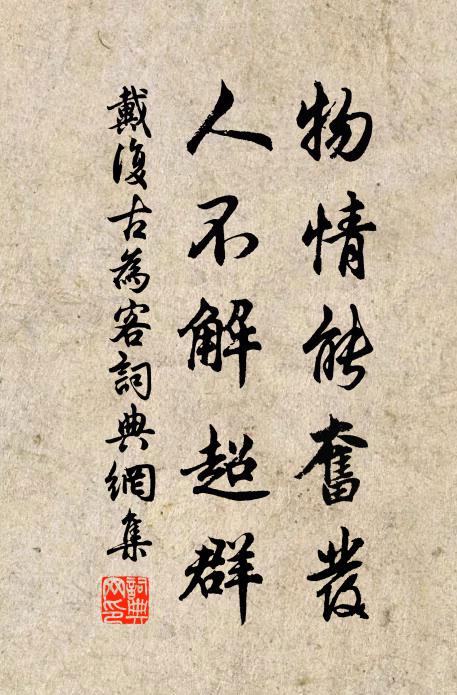 物情能奮發
人不解超群
戴復古為客詞典網集
詞典網印